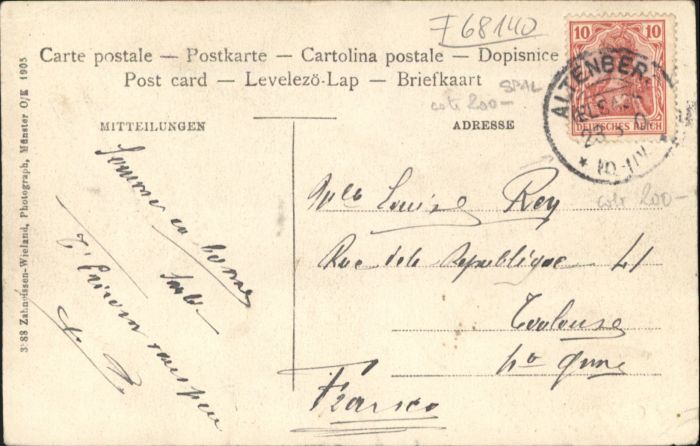 F 68140
Carte postale — Postkarte — Cartolina postale — Dopisnice
Post card — Levelezö-Lap — Briefkaart
SPAL
cote 200-
10 10
DEUTSCHES REICH
ALTENBER
ELSASS
23
MITTEILUNGEN
ADRESSE
cote 200-
Sommes en bonne
santé
t'écrirai sous peu
Mlle Louise Rey
Rue de la République 41
Toulouse
Hte Gne
France
3 88 Zahneissen-Wieland, Photograph, Münster O/E 1905